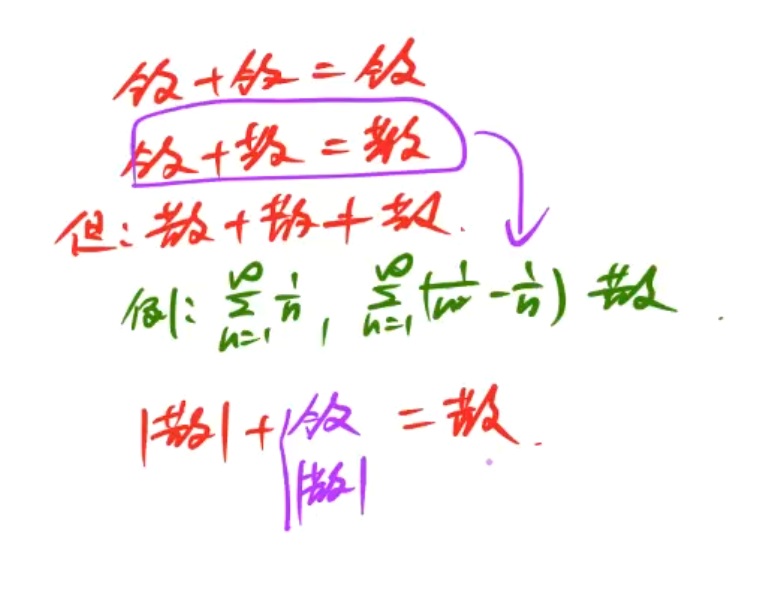 敛+敛=敛
敛+散=散
但:散+散≠散.
例:∑_{n=1}^{∞} 1/n, ∑_{n=1}^{∞} (1/n² - 1/n) 散.
|散|+|敛 =散.
|散|